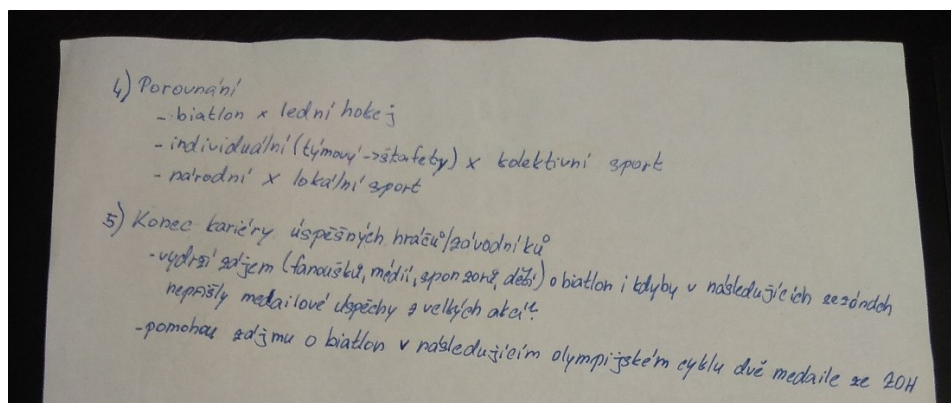 4) Porovnání
- biatlon x lední hokej
- individuální (týmový -> štafety) x kolektivní sport
- národní x lokální sport
5) Konec kariéry úspěšných hráčů/závodníků
- vydrží zájem (fanoušků, médií, sponzorů, dětí) o biatlon i kdyby v následujících sezónách
nepřišly medailové úspěchy z velkých akcí?
- pomohou zájmu o biatlon v následujícím olympijském cyklu dvě medaile ze ZOH